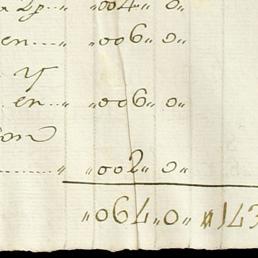 "004" 0"
en...." "006" 0"
y
en...." "006" 0"
ion
........" "002" 0"
"064"0"